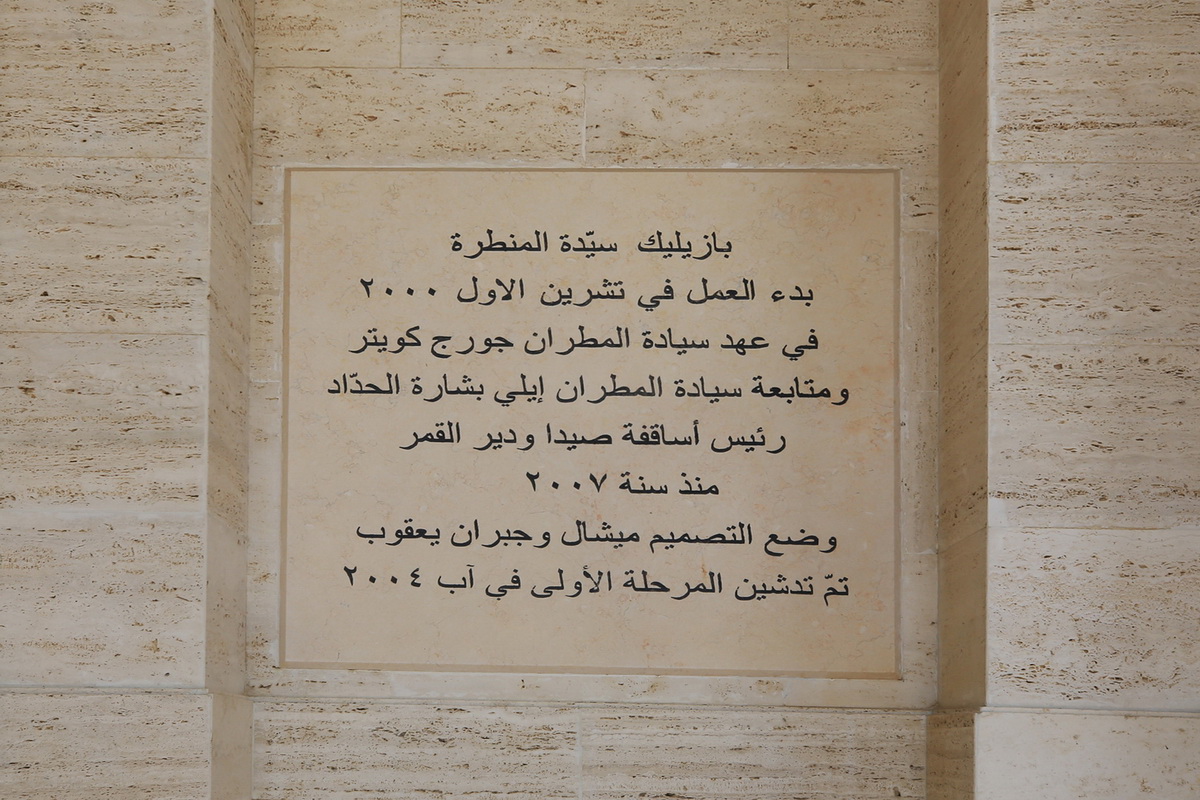 بازيليك سيّدة المنطرة
بدء العمل في تشرين الاول ٢٠٠٠
في عهد سيادة المطران جورج كويتر
ومتابعة سيادة المطران إيلي بشارة الحدّاد
رئيس أساقفة صيدا ودير القمر
منذ سنة ٢٠٠٧
وضع التصميم ميشال وجبران يعقوب
تمّ تدشين المرحلة الأولى في آب ٢٠٠٤